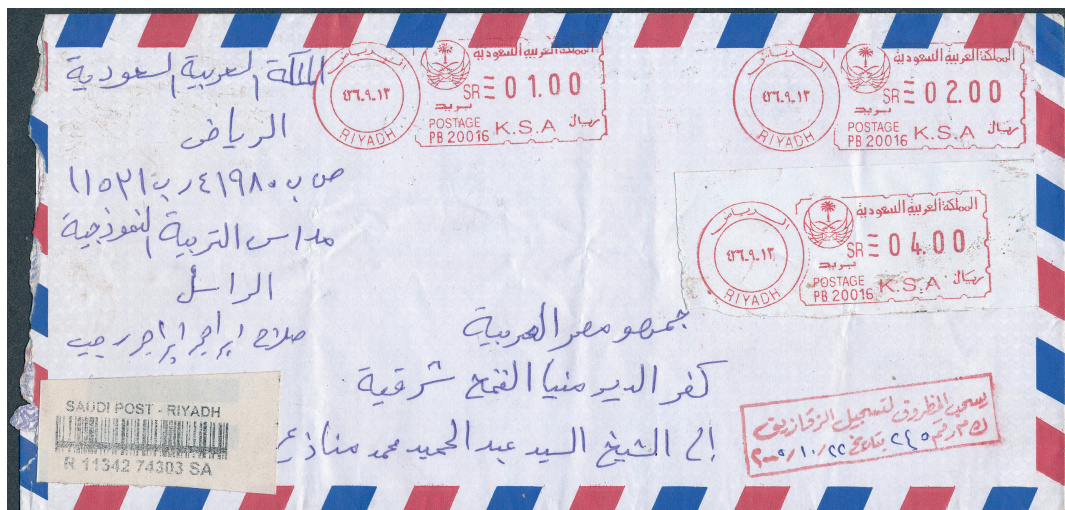 المملكة العربية السعودية
الرياض
ص ب ٤١٩٨٠ ر ب ١١٥٢١
مدارس التربية النموذجية
الراسل
صلاح
رجب
SAUDI POST - RIYADH
R 11342 74303 SA
الرياض
٤٢٦.٩.١٢
RIYADH
المملكة العربية السعودية
SR 01.00
بريد
POSTAGE
PB 20016 K.S.A ريال
الرياض
٤٢٦.٩.١٢
RIYADH
المملكة العربية السعودية
SR 02.00
بريد
POSTAGE
PB 20016 K.S.A ريال
الرياض
٤٢٦.٩.١٢
RIYADH
المملكة العربية السعودية
SR 04.00
بريد
POSTAGE
PB 20016 K.S.A ريال
جمهو مصر العربية
كفر الدير منيا القمح شرقية
إلى الشيخ السيد عبد الحميد محمد
يسحب المظروف لتسجيل الزقازيق
رقم ٢٤٥ بتاريخ ٢٢/١٠/٢٠٠٥